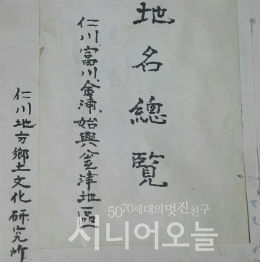 地名總覽
仁川、富川、金浦、始興、甕津地區
仁川地方鄕土文化硏究所
5070세대의 멋진 친구
시니어오늘